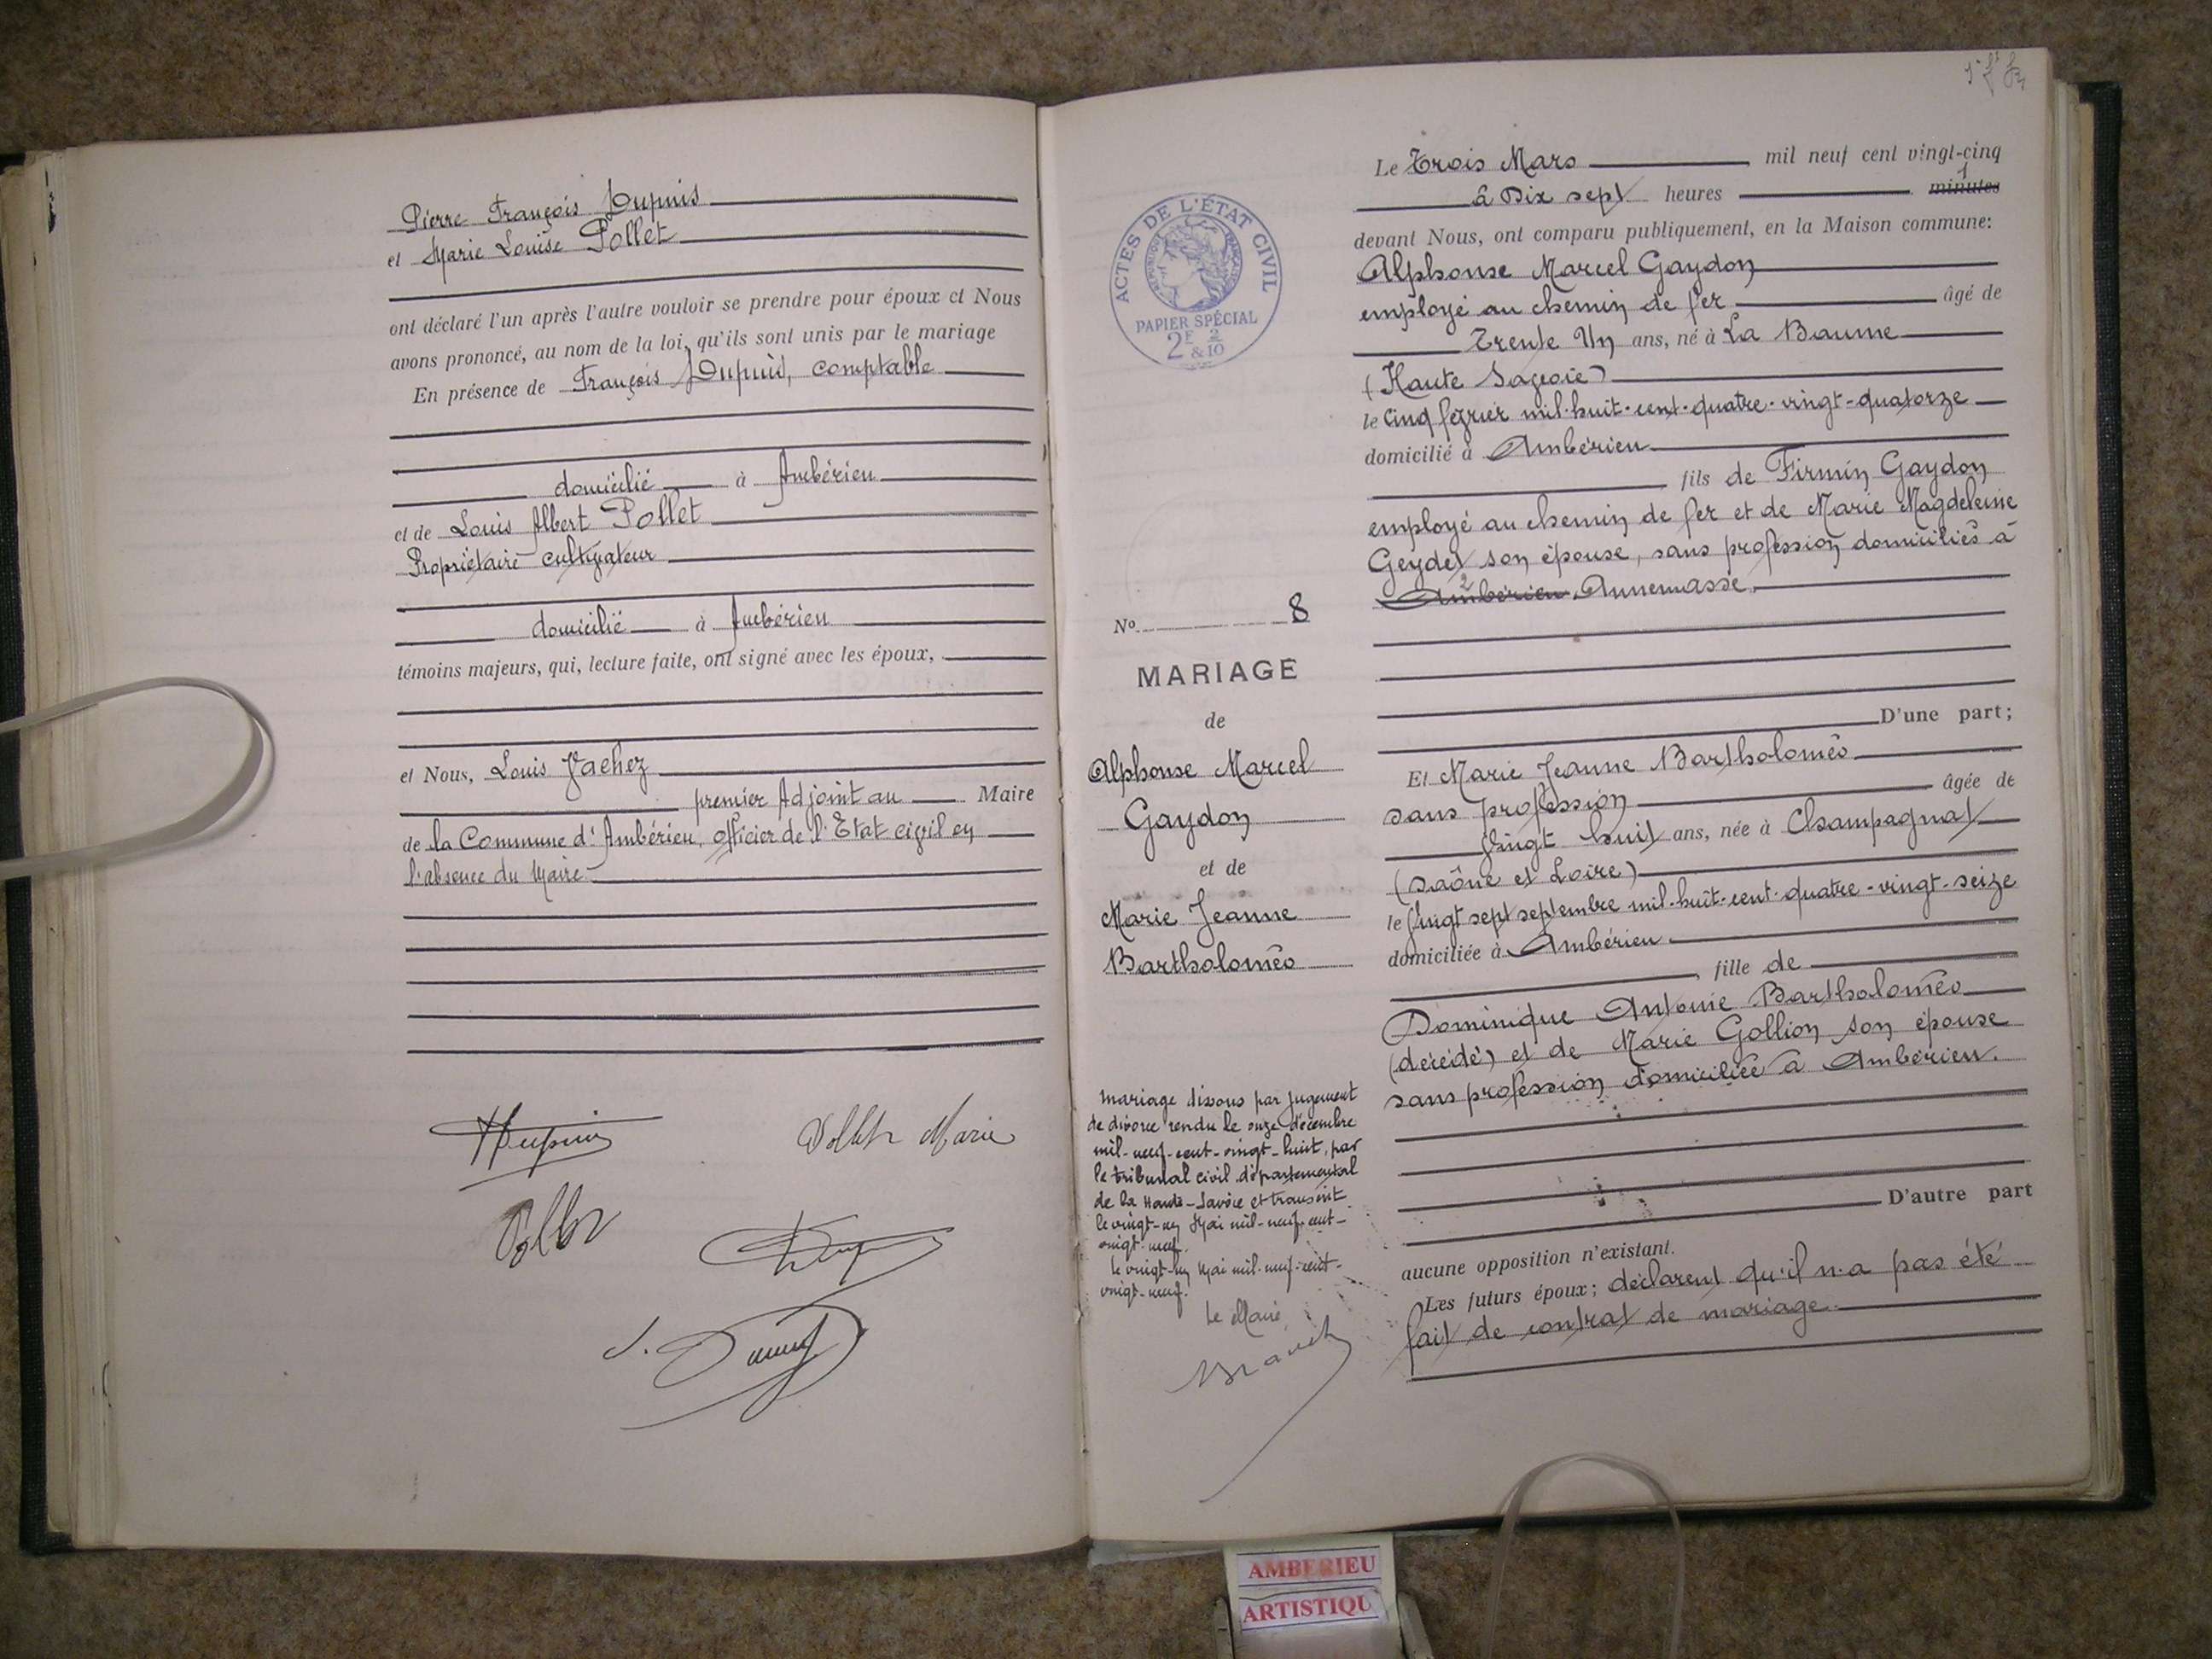 Pierre François Dupuis
et Marie Louise Pollet
ont déclaré l'un après l'autre vouloir se prendre pour époux et Nous
avons prononcé, au nom de la loi, qu'ils sont unis par le mariage
En présence de François Dupuis, comptable
domicilié à Ambérieu
et de Louis Albert Pollet
Propriétaire cultivateur
domicilié à Ambérieu
témoins majeurs, qui, lecture faite, ont signé avec les époux,
et Nous, Louis Vachez
premier Adjoint au Maire
de la Commune d'Ambérieu, officier de l'Etat civil en
l'absence du Maire.
Dupuis
Pollet Marie
ACTES DE L'ÉTAT CIVIL
RÉPUBLIQUE FRANÇAISE
PAPIER SPÉCIAL
2F 2
&10
No 8
MARIAGE
de
Alphonse Marcel
Gaydon
et de
Marie Jeanne
Bartholoméo
Mariage dissous par jugement
de divorce rendu le onze décembre
mil-neuf-cent-vingt-huit, par
le tribunal civil départemental
de la Haute-Savoie et transcrit
le vingt-un Mai mil-neuf-cent-
vingt-neuf.
le vingt-un Mai mil-neuf-cent-
vingt-neuf.
Le Maire
Le Trois Mars mil neuf cent vingt-cinq
à Dix sept heures minutes 1
devant Nous, ont comparu publiquement, en la Maison commune:
Alphonse Marcel Gaydon
employé au chemin de fer âgé de
Trente Un ans, né à La Baume
(Haute Savoie)
le cinq février mil-huit-cent-quatre-vingt-quatorze
domicilié à Ambérieu
fils de Firmin Gaydon
employé au chemin de fer et de Marie Magdeleine
Geydet son épouse, sans profession domiciliés à
Ambérieu 2 Annemasse.
D'une part;
Et Marie Jeanne Bartholoméo
sans profession âgée de
Vingt huit ans, née à Champagnat
(Saône et Loire)
le Vingt sept septembre mil-huit-cent-quatre-vingt-seize
domiciliée à Ambérieu.
fille de
Dominique Antonie Bartholoméo
(décédé) et de Marie Gollion son épouse
sans profession domiciliée à Ambérieu.
D'autre part
aucune opposition n'existant.
Les futurs époux; déclarent qu'il n'a pas été
fait de contrat de mariage.
AMBERIEU
ARTISTIQU